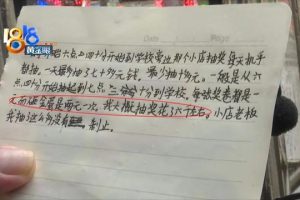 1818
黄金眼
六点上四十分开始到学校旁边那个小店抽奖每天几乎
都抽。一天最多抽了七十多元钱。最少抽十多元。一般是从六
点四十分开始抽起到七点三十分到学校。每张奖卷都是一
元而且全是两元一次。我大概抽奖花了六千左右。小店老板
我抽这么多没有制止。